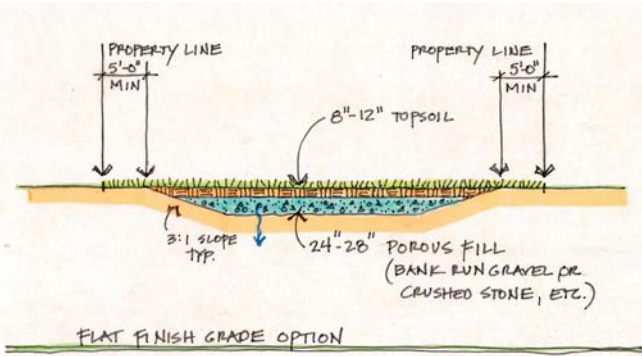 PROPERTY LINE
5'-0"
MIN
PROPERTY LINE
5'-0"
MIN
8"-12" TOPSOIL
3:1 SLOPE
TYP.
24"-28" POROUS FILL
(BANK RUN GRAVEL OR
CRUSHED STONE, ETC.)
FLAT FINISH GRADE OPTION